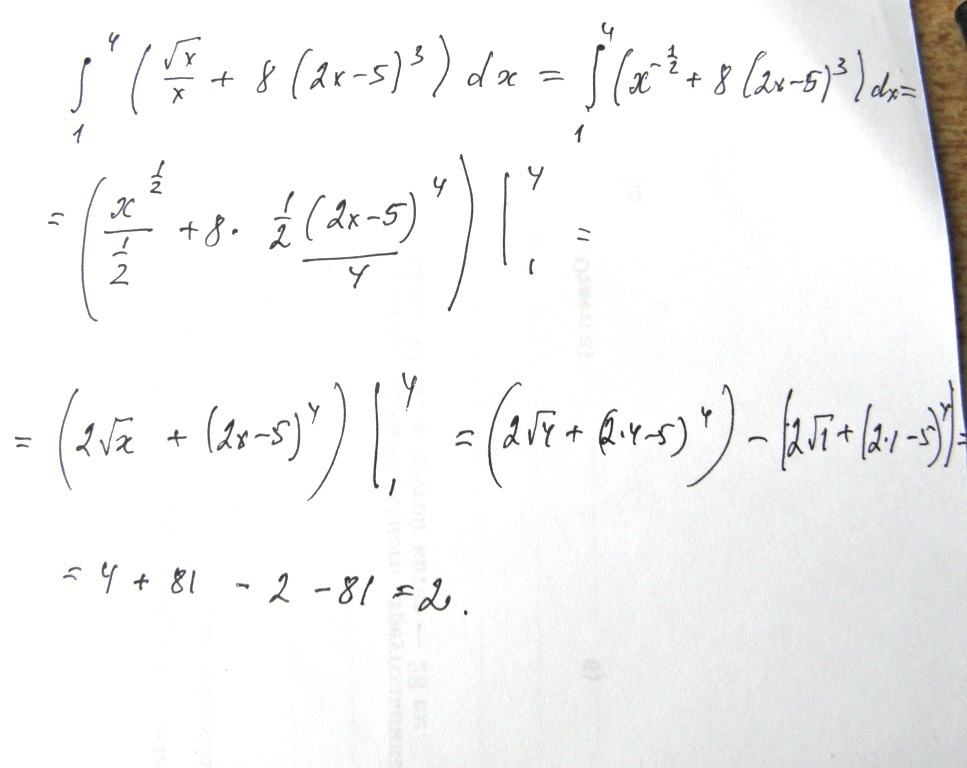 ∫₁⁴ (√x/x + 8(2x-5)³) dx = ∫₁⁴ (x^(-1/2) + 8(2x-5)³) dx =
= (x^(1/2)/(1/2) + 8 · 1/2 (2x-5)⁴/4) |₁⁴ =
= (2√x + (2x-5)⁴) |₁⁴ = (2√4 + (2·4-5)⁴) - (2√1 + (2·1-5)⁴) =
= 4 + 81 - 2 - 81 = 2.